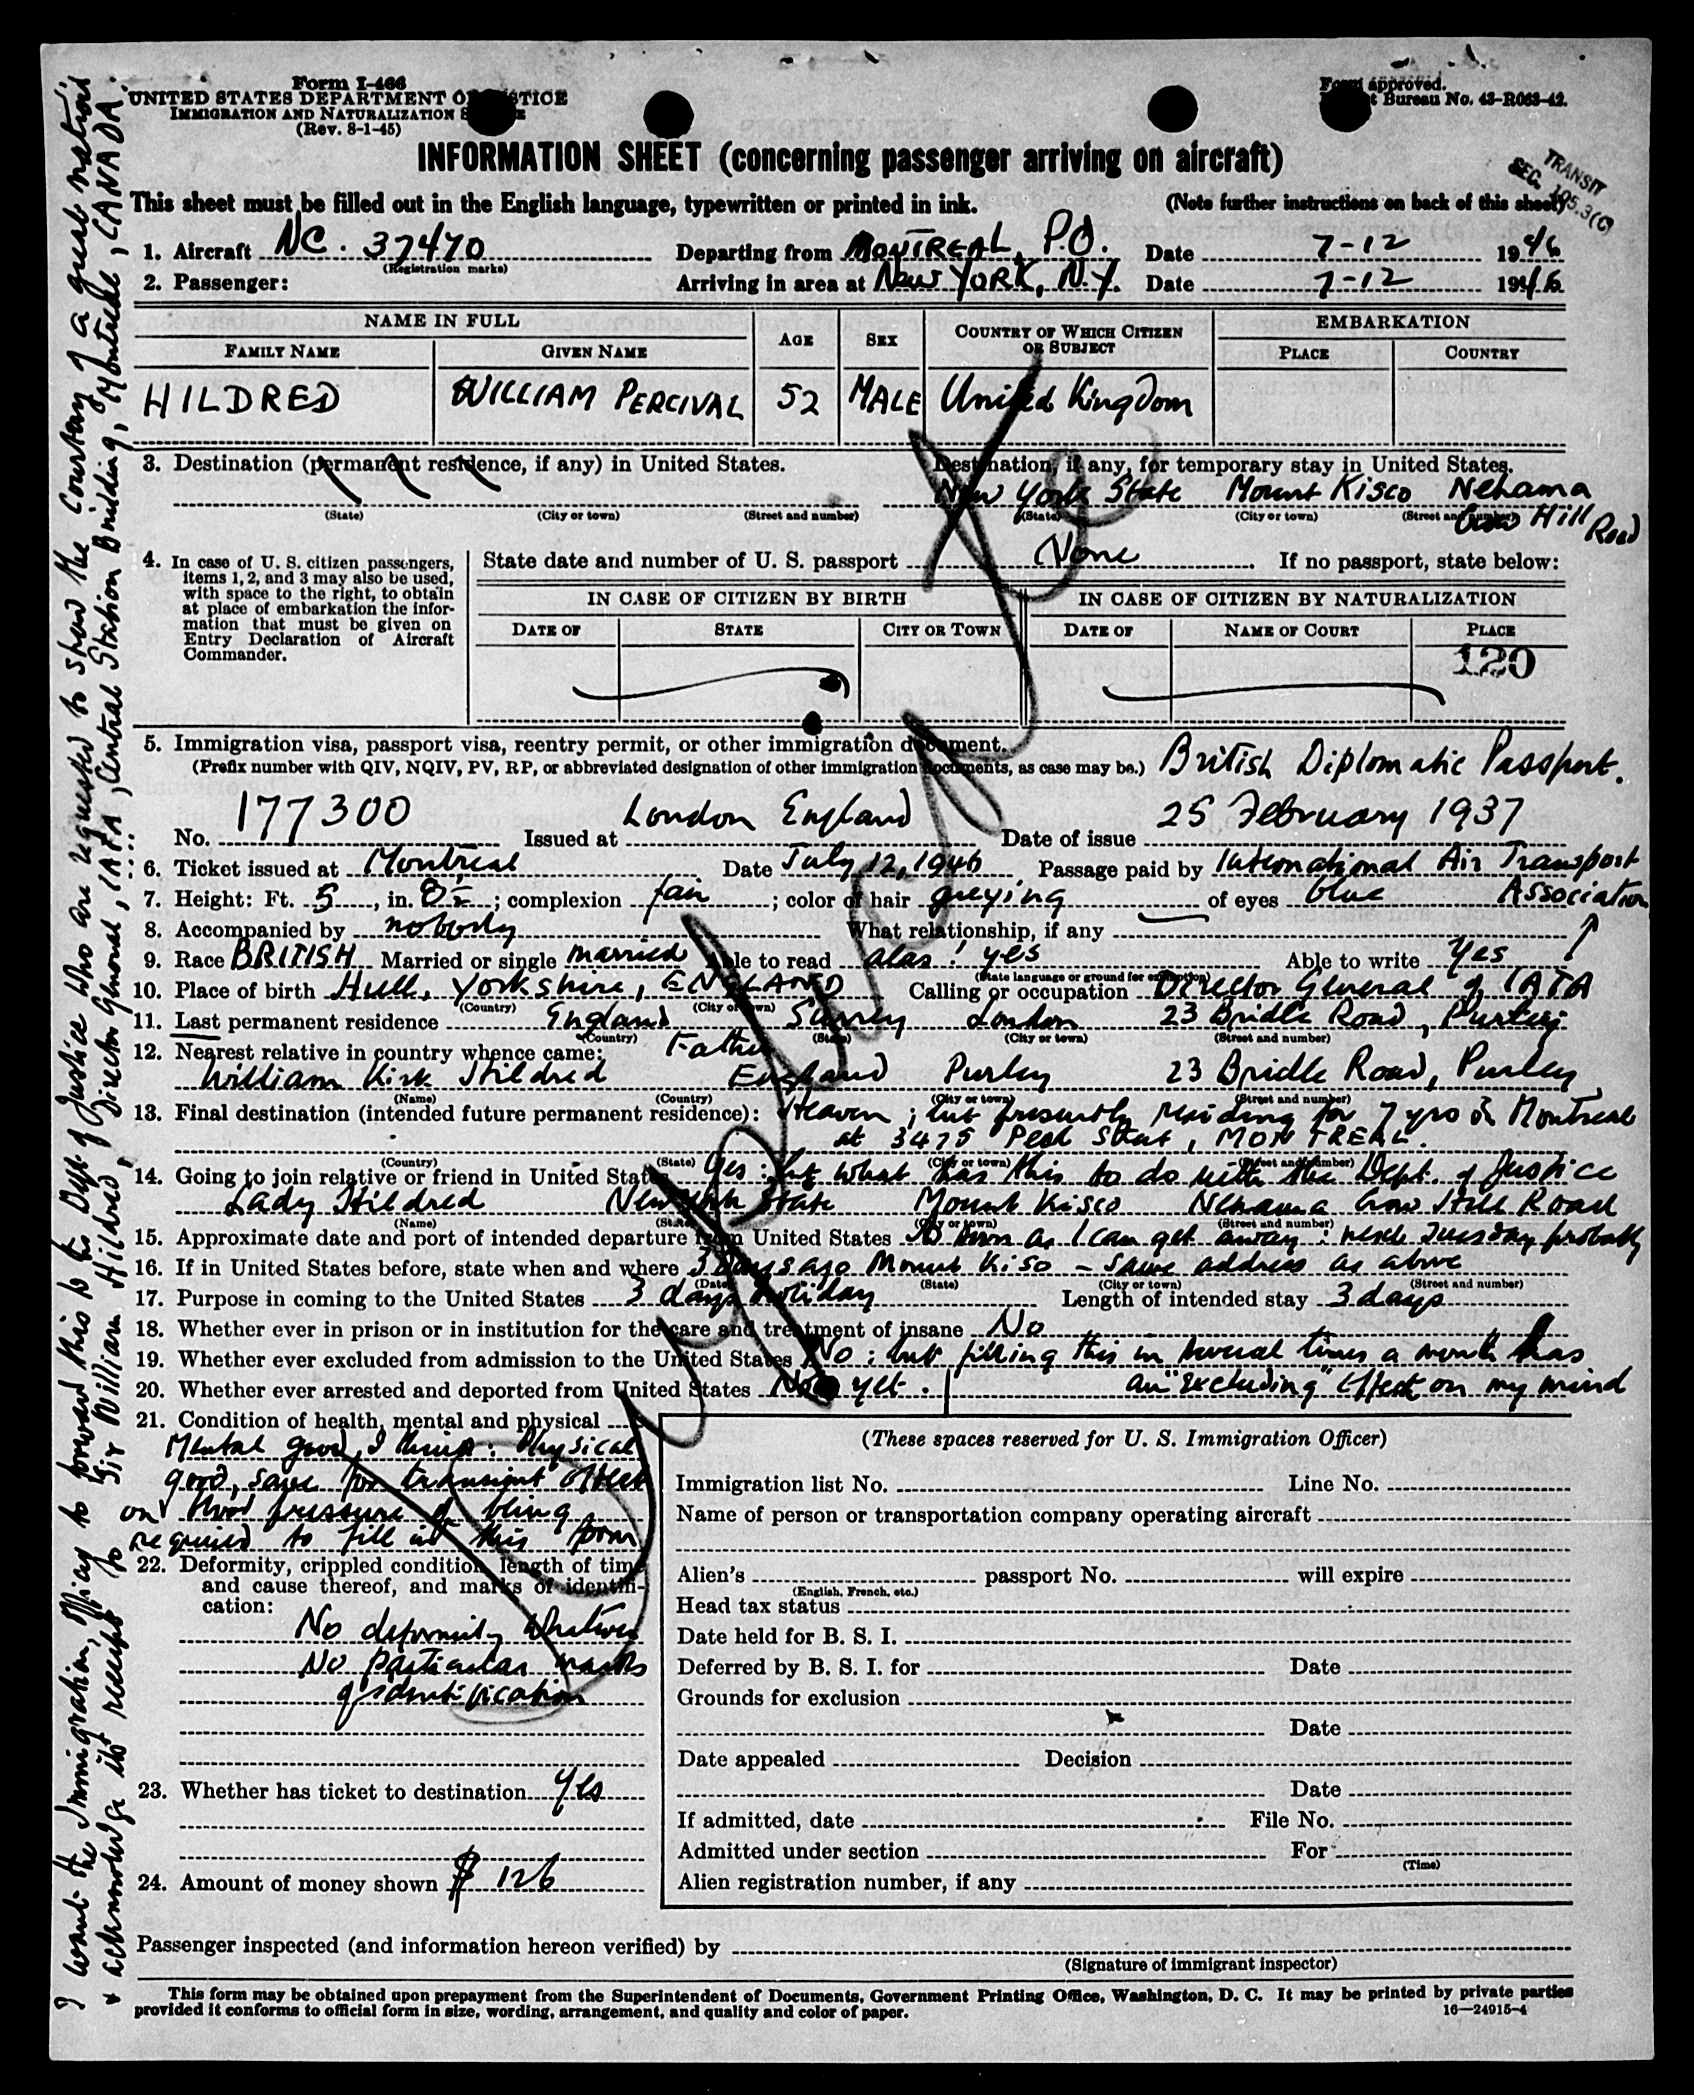 Form I-466
UNITED STATES DEPARTMENT OF JUSTICE
IMMIGRATION AND NATURALIZATION SERVICE
(Rev. 8-1-45)
Form approved.
Budget Bureau No. 43-R063-42.
INFORMATION SHEET (concerning passenger arriving on aircraft)
TRANSIT
SEC. 105.3(C)
This sheet must be filled out in the English language, typewritten or printed in ink. (Note further instructions on back of this sheet)
1. Aircraft NC. 37470 Departing from MONTREAL, P.Q. Date 7-12 1946
(Registration marks)
2. Passenger: Arriving in area at NEW YORK, N.Y. Date 7-12 1946
NAME IN FULL AGE SEX COUNTRY OF WHICH CITIZEN OR SUBJECT EMBARKATION
FAMILY NAME GIVEN NAME PLACE COUNTRY
HILDRED WILLIAM PERCIVAL 52 MALE United Kingdom
3. Destination (permanent residence, if any) in United States. Destination, if any, for temporary stay in United States.
New York State Mount Kisco Nehama
(State) (City or town) (Street and number) (State) (City or town) (Street and number)
Crow Hill Road
4. In case of U. S. citizen passengers, items 1, 2, and 3 may also be used, with space to the right, to obtain at place of embarkation the information that must be given on Entry Declaration of Aircraft Commander.
State date and number of U. S. passport None If no passport, state below:
IN CASE OF CITIZEN BY BIRTH IN CASE OF CITIZEN BY NATURALIZATION
DATE OF STATE CITY OR TOWN DATE OF NAME OF COURT PLACE
120
5. Immigration visa, passport visa, reentry permit, or other immigration document.
(Prefix number with QIV, NQIV, PV, RP, or abbreviated designation of other immigration documents, as case may be.) British Diplomatic Passport.
No. 177300 Issued at London England Date of issue 25 February 1937
6. Ticket issued at Montreal Date July 12, 1946 Passage paid by International Air Transport
Association
7. Height: Ft. 5, in. 8½; complexion fair; color of hair greying of eyes blue
8. Accompanied by nobody What relationship, if any
9. Race BRITISH Married or single married Able to read alas! yes Able to write Yes
(State language or ground for exemption)
10. Place of birth Hull, Yorkshire, ENGLAND Calling or occupation Director General of IATA
(Country) (City or town)
11. Last permanent residence England Surrey London 23 Bridle Road, Purley
(Country) (State) (City or town) (Street and number)
12. Nearest relative in country whence came: Father
William Kirk Hildred England Purley 23 Bridle Road, Purley
(Name) (Country) (City or town) (Street and number)
13. Final destination (intended future permanent residence): Heaven; but presently residing for 7 yrs in Montreal
at 3475 Peel Street, MONTREAL.
(Country) (State) (City or town) (Street and number)
14. Going to join relative or friend in United States Yes: but what has this to do with the Dept. of Justice
Lady Hildred New York State Mount Kisco Nehama Crow Hill Road
(Name) (State) (City or town) (Street and number)
15. Approximate date and port of intended departure from United States As soon as I can get away: next Tuesday probably
16. If in United States before, state when and where 3 days ago Mount Kisco - same address as above
(Date) (State) (City or town) (Street and number)
17. Purpose in coming to the United States 3 days holiday Length of intended stay 3 days
18. Whether ever in prison or in institution for the care and treatment of insane No
19. Whether ever excluded from admission to the United States No: but filling this in several times a month has
an "excluding" effect on my mind
20. Whether ever arrested and deported from United States Not yet.
21. Condition of health, mental and physical
Mental good, I think. Physical
good, save for transient effect
on blood pressure of being
required to fill in this form
22. Deformity, crippled condition, length of time and cause thereof, and marks of identification:
No deformity whatever
No particular marks
of identification
23. Whether has ticket to destination Yes
24. Amount of money shown $ 126
(These spaces reserved for U. S. Immigration Officer)
Immigration list No. Line No.
Name of person or transportation company operating aircraft
Alien's passport No. will expire
(English, French, etc.)
Head tax status
Date held for B. S. I.
Deferred by B. S. I. for Date
Grounds for exclusion
Date
Date appealed Decision
Date
If admitted, date File No.
Admitted under section For
(Time)
Alien registration number, if any
Passenger inspected (and information hereon verified) by
(Signature of immigrant inspector)
This form may be obtained upon prepayment from the Superintendent of Documents, Government Printing Office, Washington, D. C. It may be printed by private parties
provided it conforms to official form in size, wording, arrangement, and quality and color of paper. 16-24915-4
I want the Immigration Officer to forward this to the Dept. of Justice who are requested to show the courtesy of a great nation
& acknowledge its receipt to Sir William Hildred, Director General, IATA, Central Station Building, Montreal, CANADA.